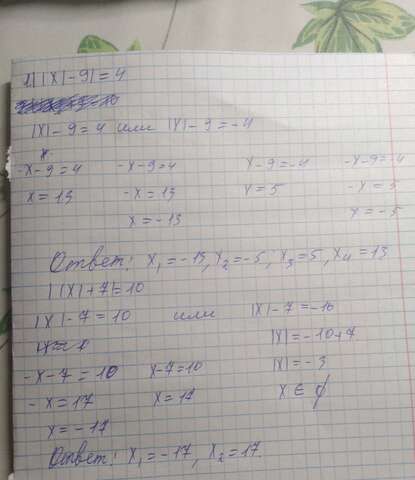 1) ||x|-9|=4
|x|-9=4 или |x|-9=-4
x-9=4 -x-9=4 x-9=-4 -x-9=-4
x=13 -x=13 x=5 -x=5
x=-13 x=-5
Ответ: x₁=-13, x₂=-5, x₃=5, x₄=13
||x|+7|=10
|x|-7=10 или |x|-7=-10
|x|=-10+7
-x-7=10 x-7=10 |x|=-3
-x=17 x=17 x∈∅
x=-17
Ответ: x₁=-17, x₂=17.